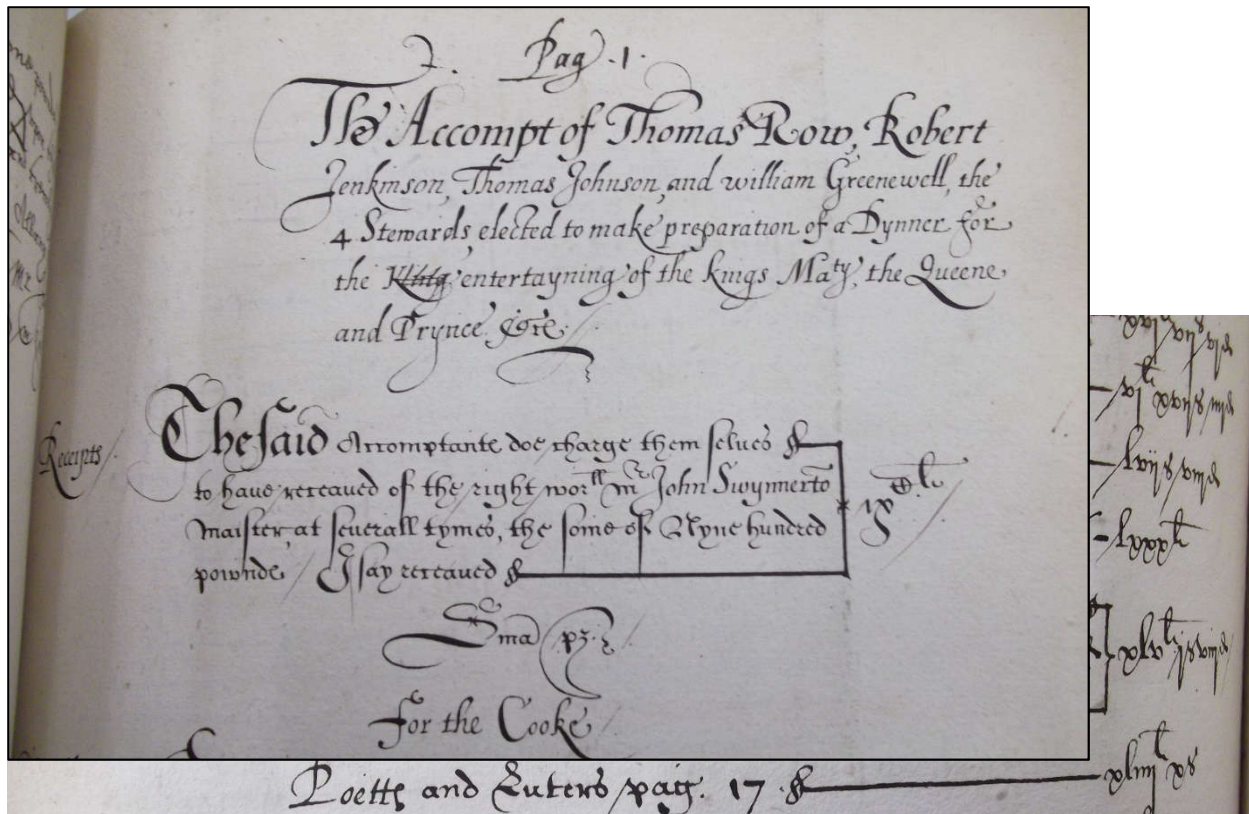 Pag .1.
The Accompt of Thomas Row, Robert
Jenkinson, Thomas Johnson, and william Greenewell, the
4 Stewards elected to make preparation of a Dynner for
the King entertayning of the kings Maty, the Queene
and Prynce &ce.
Receipts
The said Accomptante doe charge them selves
to have receaved of the right worll mr John Swynnerto
Maister, at severall tymes, the some of Nyne hundred
pownde / I say receaved
ixC li
Sma pz.
For the Cooke
xvij s vij d
vj li xvij s iiij d
lvij s viij d
lxxx li
xlv li j s viij d
Poette and Luters pag. 17
xliiij li x s